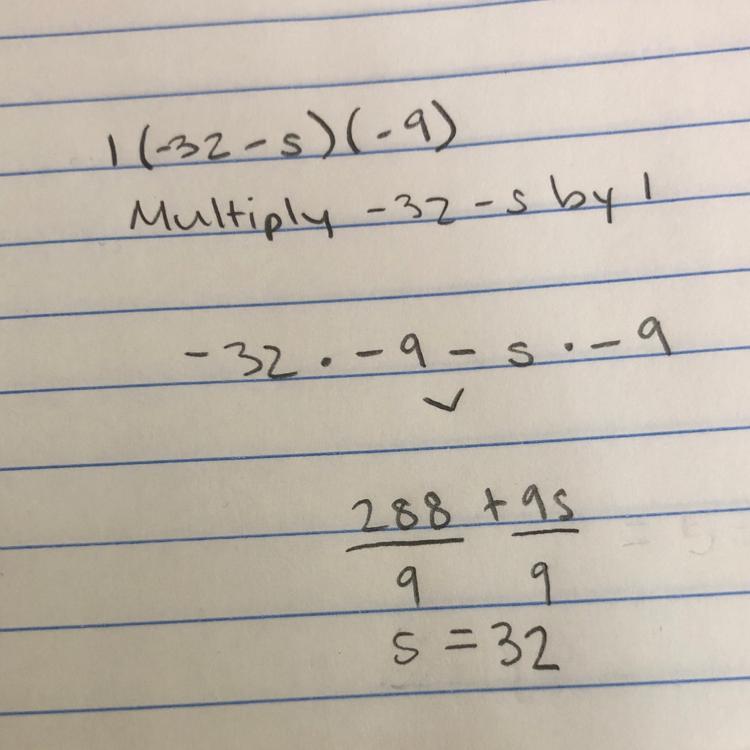 1(-32-s)(-9)
Multiply -32-s by 1
-32 · -9 - s · -9
✓
288 + 9s
9 9
s = 32